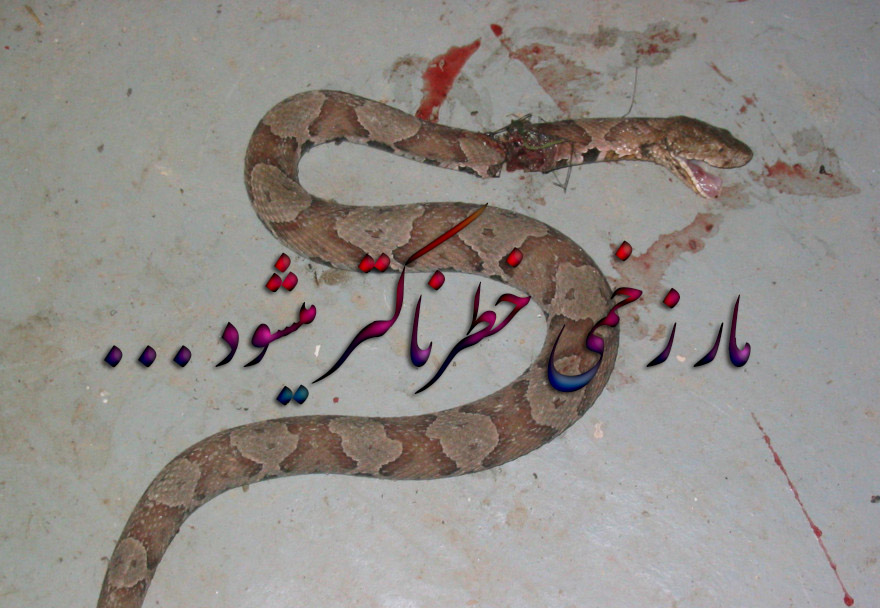 مار زخمی خطرناکتر میشود ...